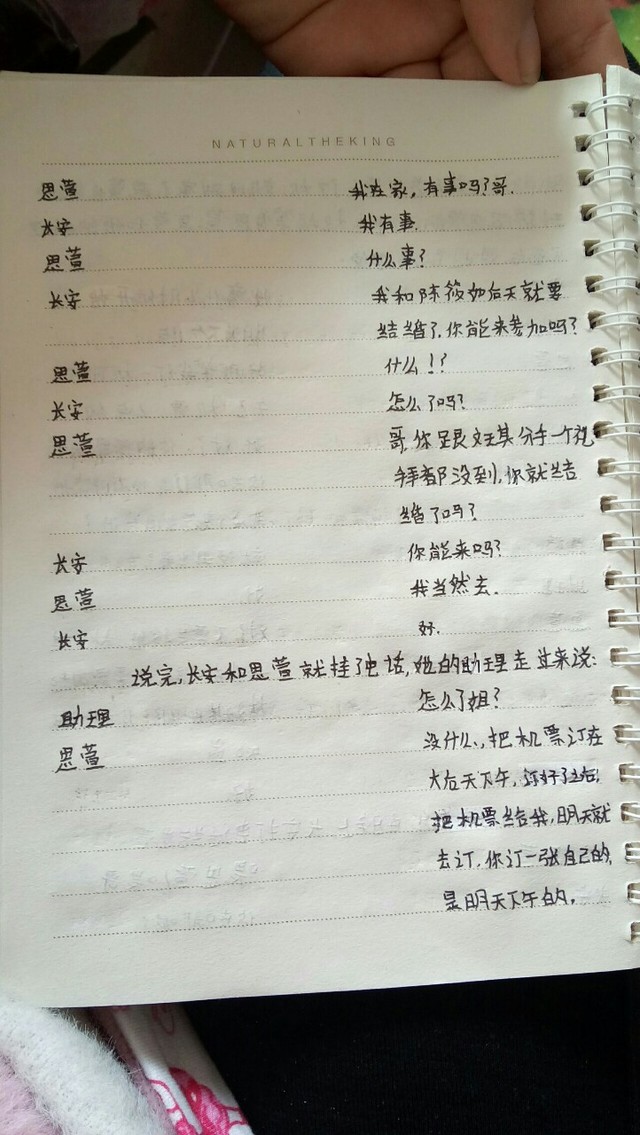 NATURALTHEKING
思萱 我在家，有事吗？哥.
长安 我有事.
思萱 什么事？
长安 我和陈筱如后天就要
结婚了.你能来参加吗？
思萱 什么！？
长安 怎么了吗？
思萱 哥，你跟文王其分手一个礼
拜都没到，你就结
婚了吗？
长安 你能来吗？
思萱 我当然去.
长安 好.
说完，长安和思萱就挂了电话，她的助理走过来说：
助理 怎么了姐？
思萱 没什么，把机票订在
大后天下午，订好了之后，
把机票给我，明天就
去订.你订一张自己的，
是明天下午的，